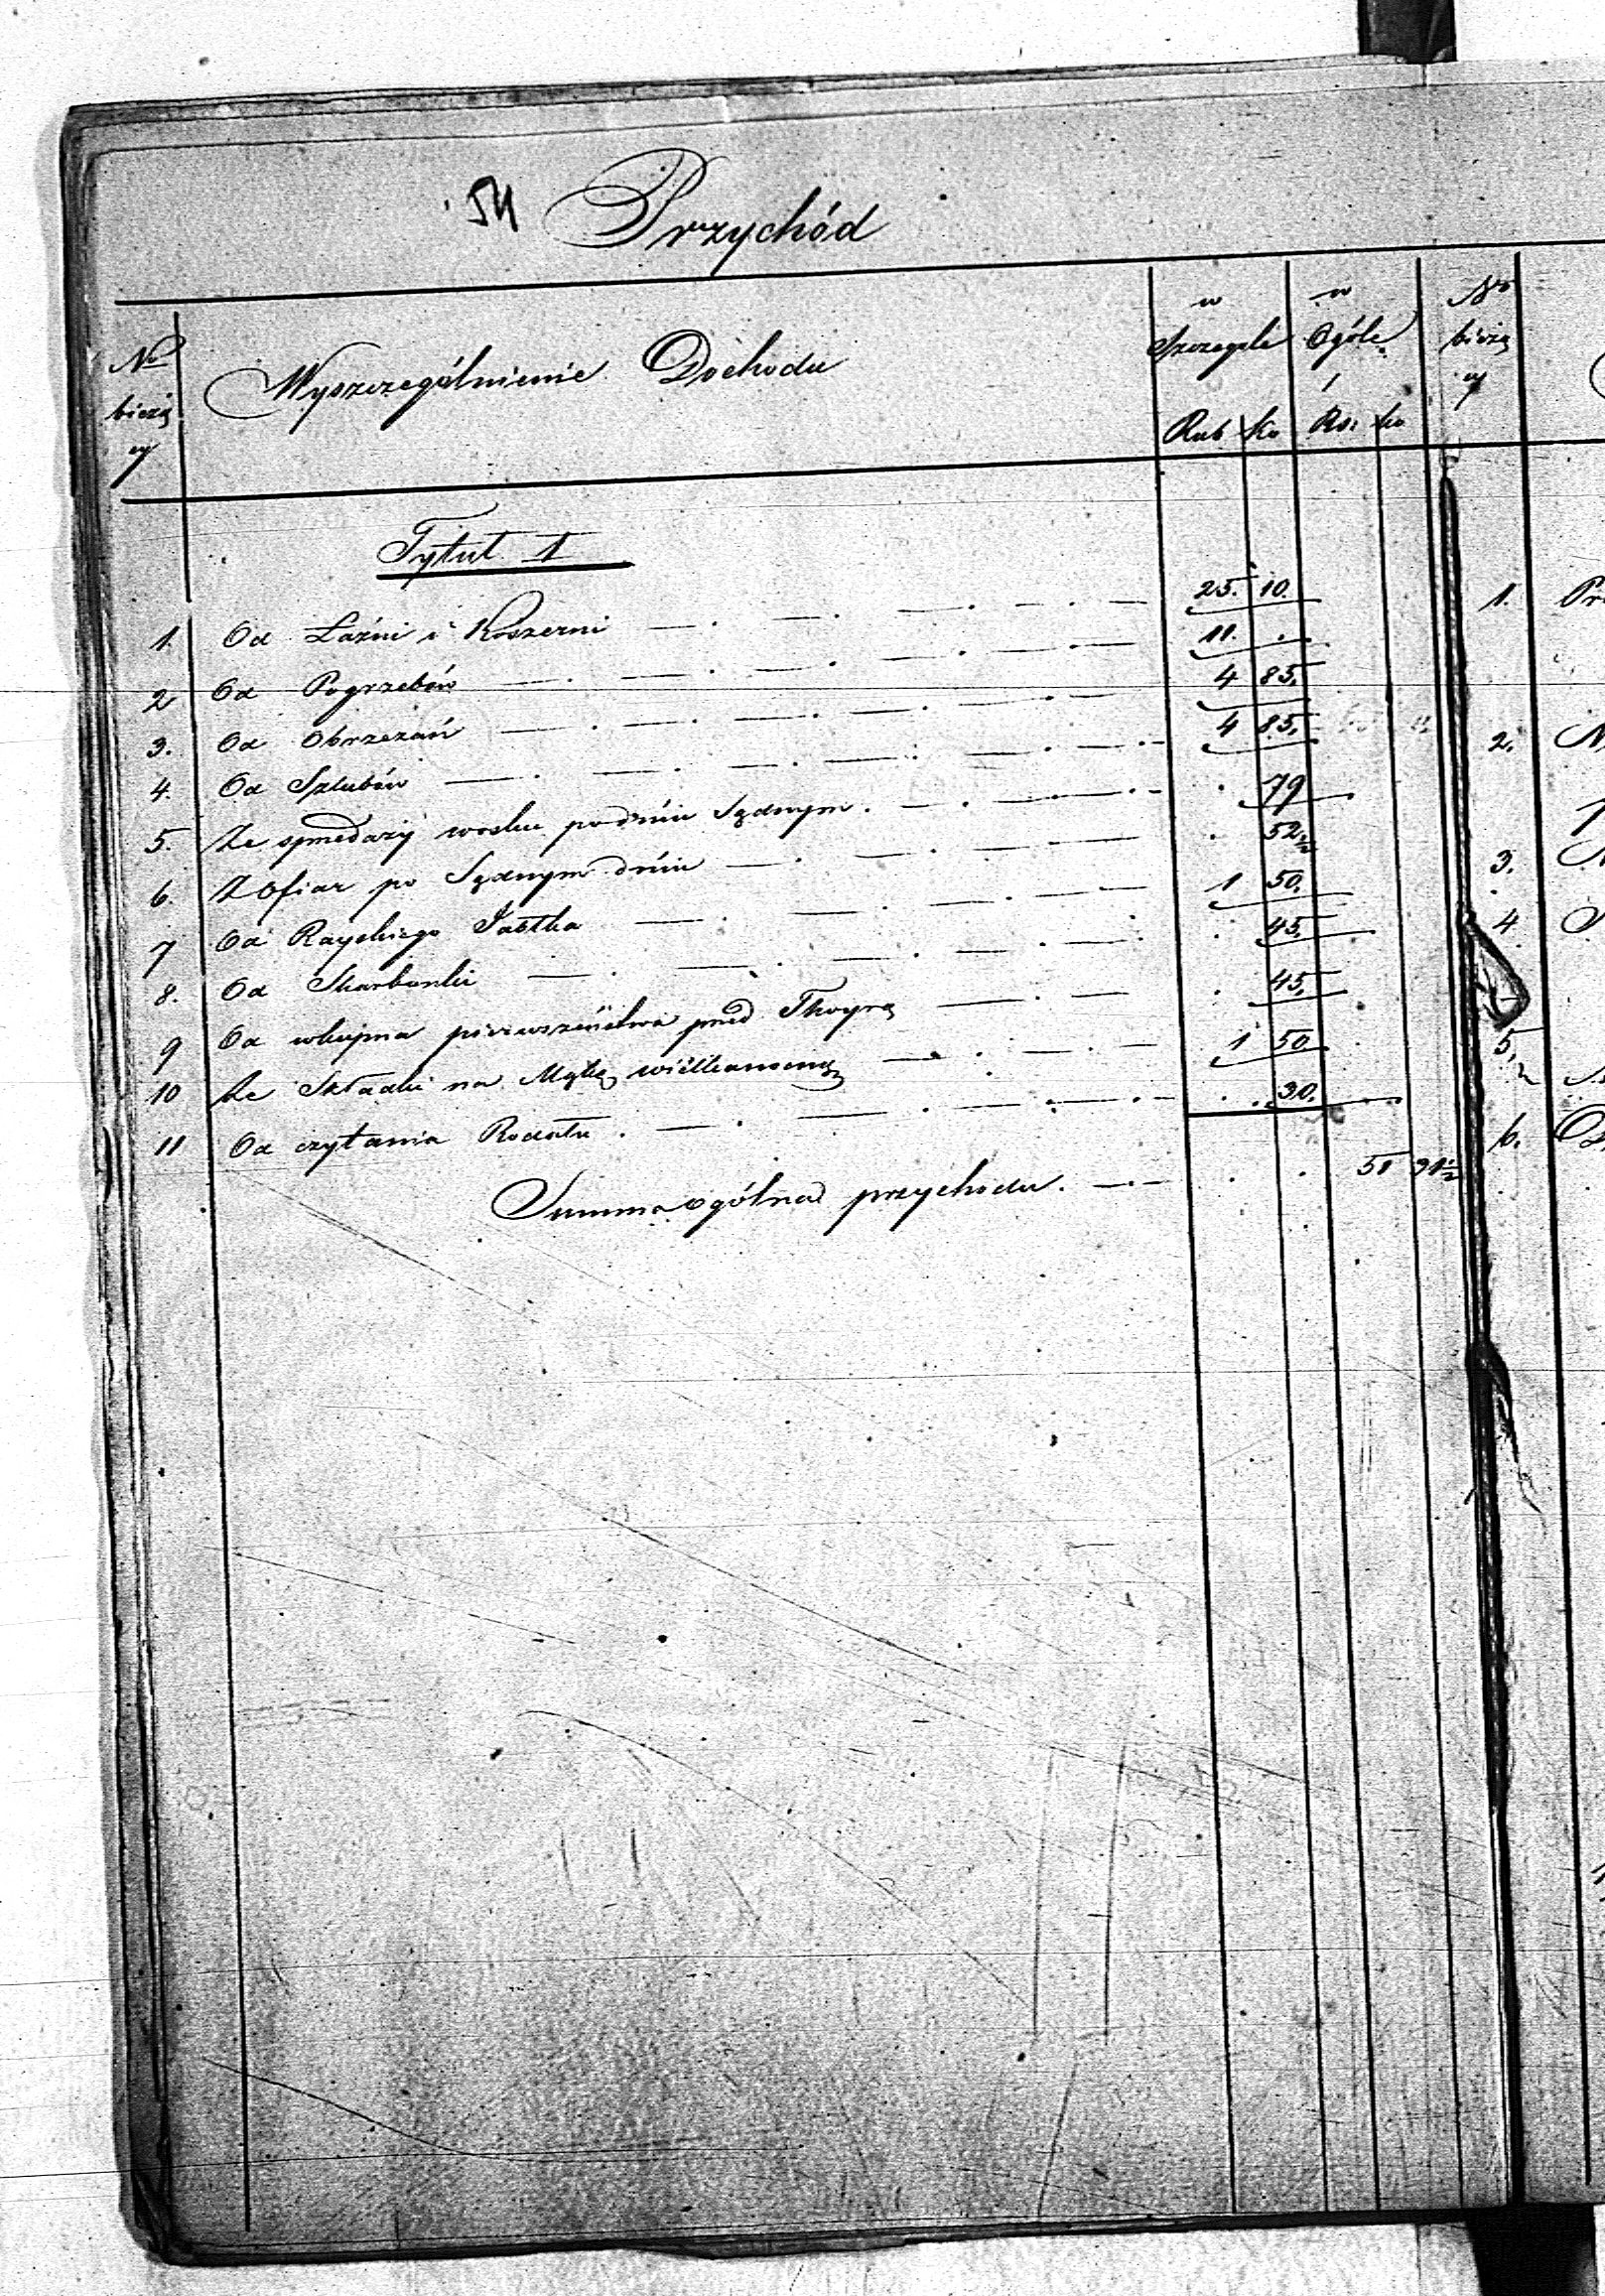 54 Przychód
No bieżący Wyszczególnienie Dochodu w Szczególe Rub Ko w Ogóle Rs: ko No bieżący
Tytuł 1
1. Od Łaźni i Koszerni 25. 10.
2 Od Pogrzebów 11. .
3. Od Obrzezań 4 85.
4. Od Szlubów 4 85.
5. Ze spredaży wosku po dniu Sądnym . . 79
6. Z Ofiar po Sądnym dniu . 52 1/2
7 Od Rayskiego Jabłka 1 50.
8. Od Skarbonki . 45.
9 Od wkupna pierwszeństwa pred Thorą . 45.
10 Ze Składki na Mąkę wielkanocną 1 50
11 Od czytania Rodału . . 30.
Summa ogólna przychodu . . 51 31 1/2
1. Pr
2.
3.
4.
5.
6.